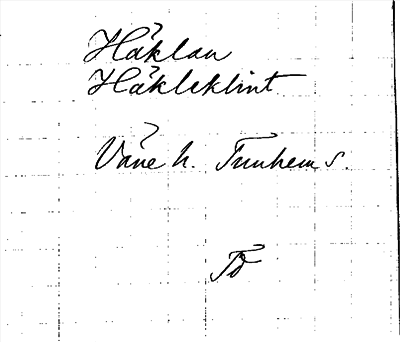 Håklan
Häkleklint
Väne h. Trunhem s.
To